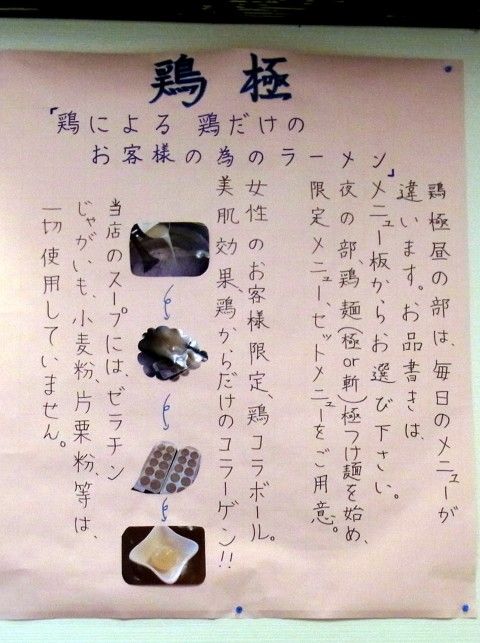 鶏極
「鶏による 鶏だけの
お客様の為のラーメン」
鶏極昼の部は、毎日のメニューが
違います。お品書きは、
メニュー板からお選び下さい。
夜の部、鶏麺(極or斬)極つけ麺を始め、
限定メニュー、セットメニューをご用意。
女性のお客様限定、鶏コラボール。
美肌効果、鶏からだけのコラーゲン!!
当店のスープには、ゼラチン
じゃがいも、小麦粉、片栗粉、等は、
一切使用していません。